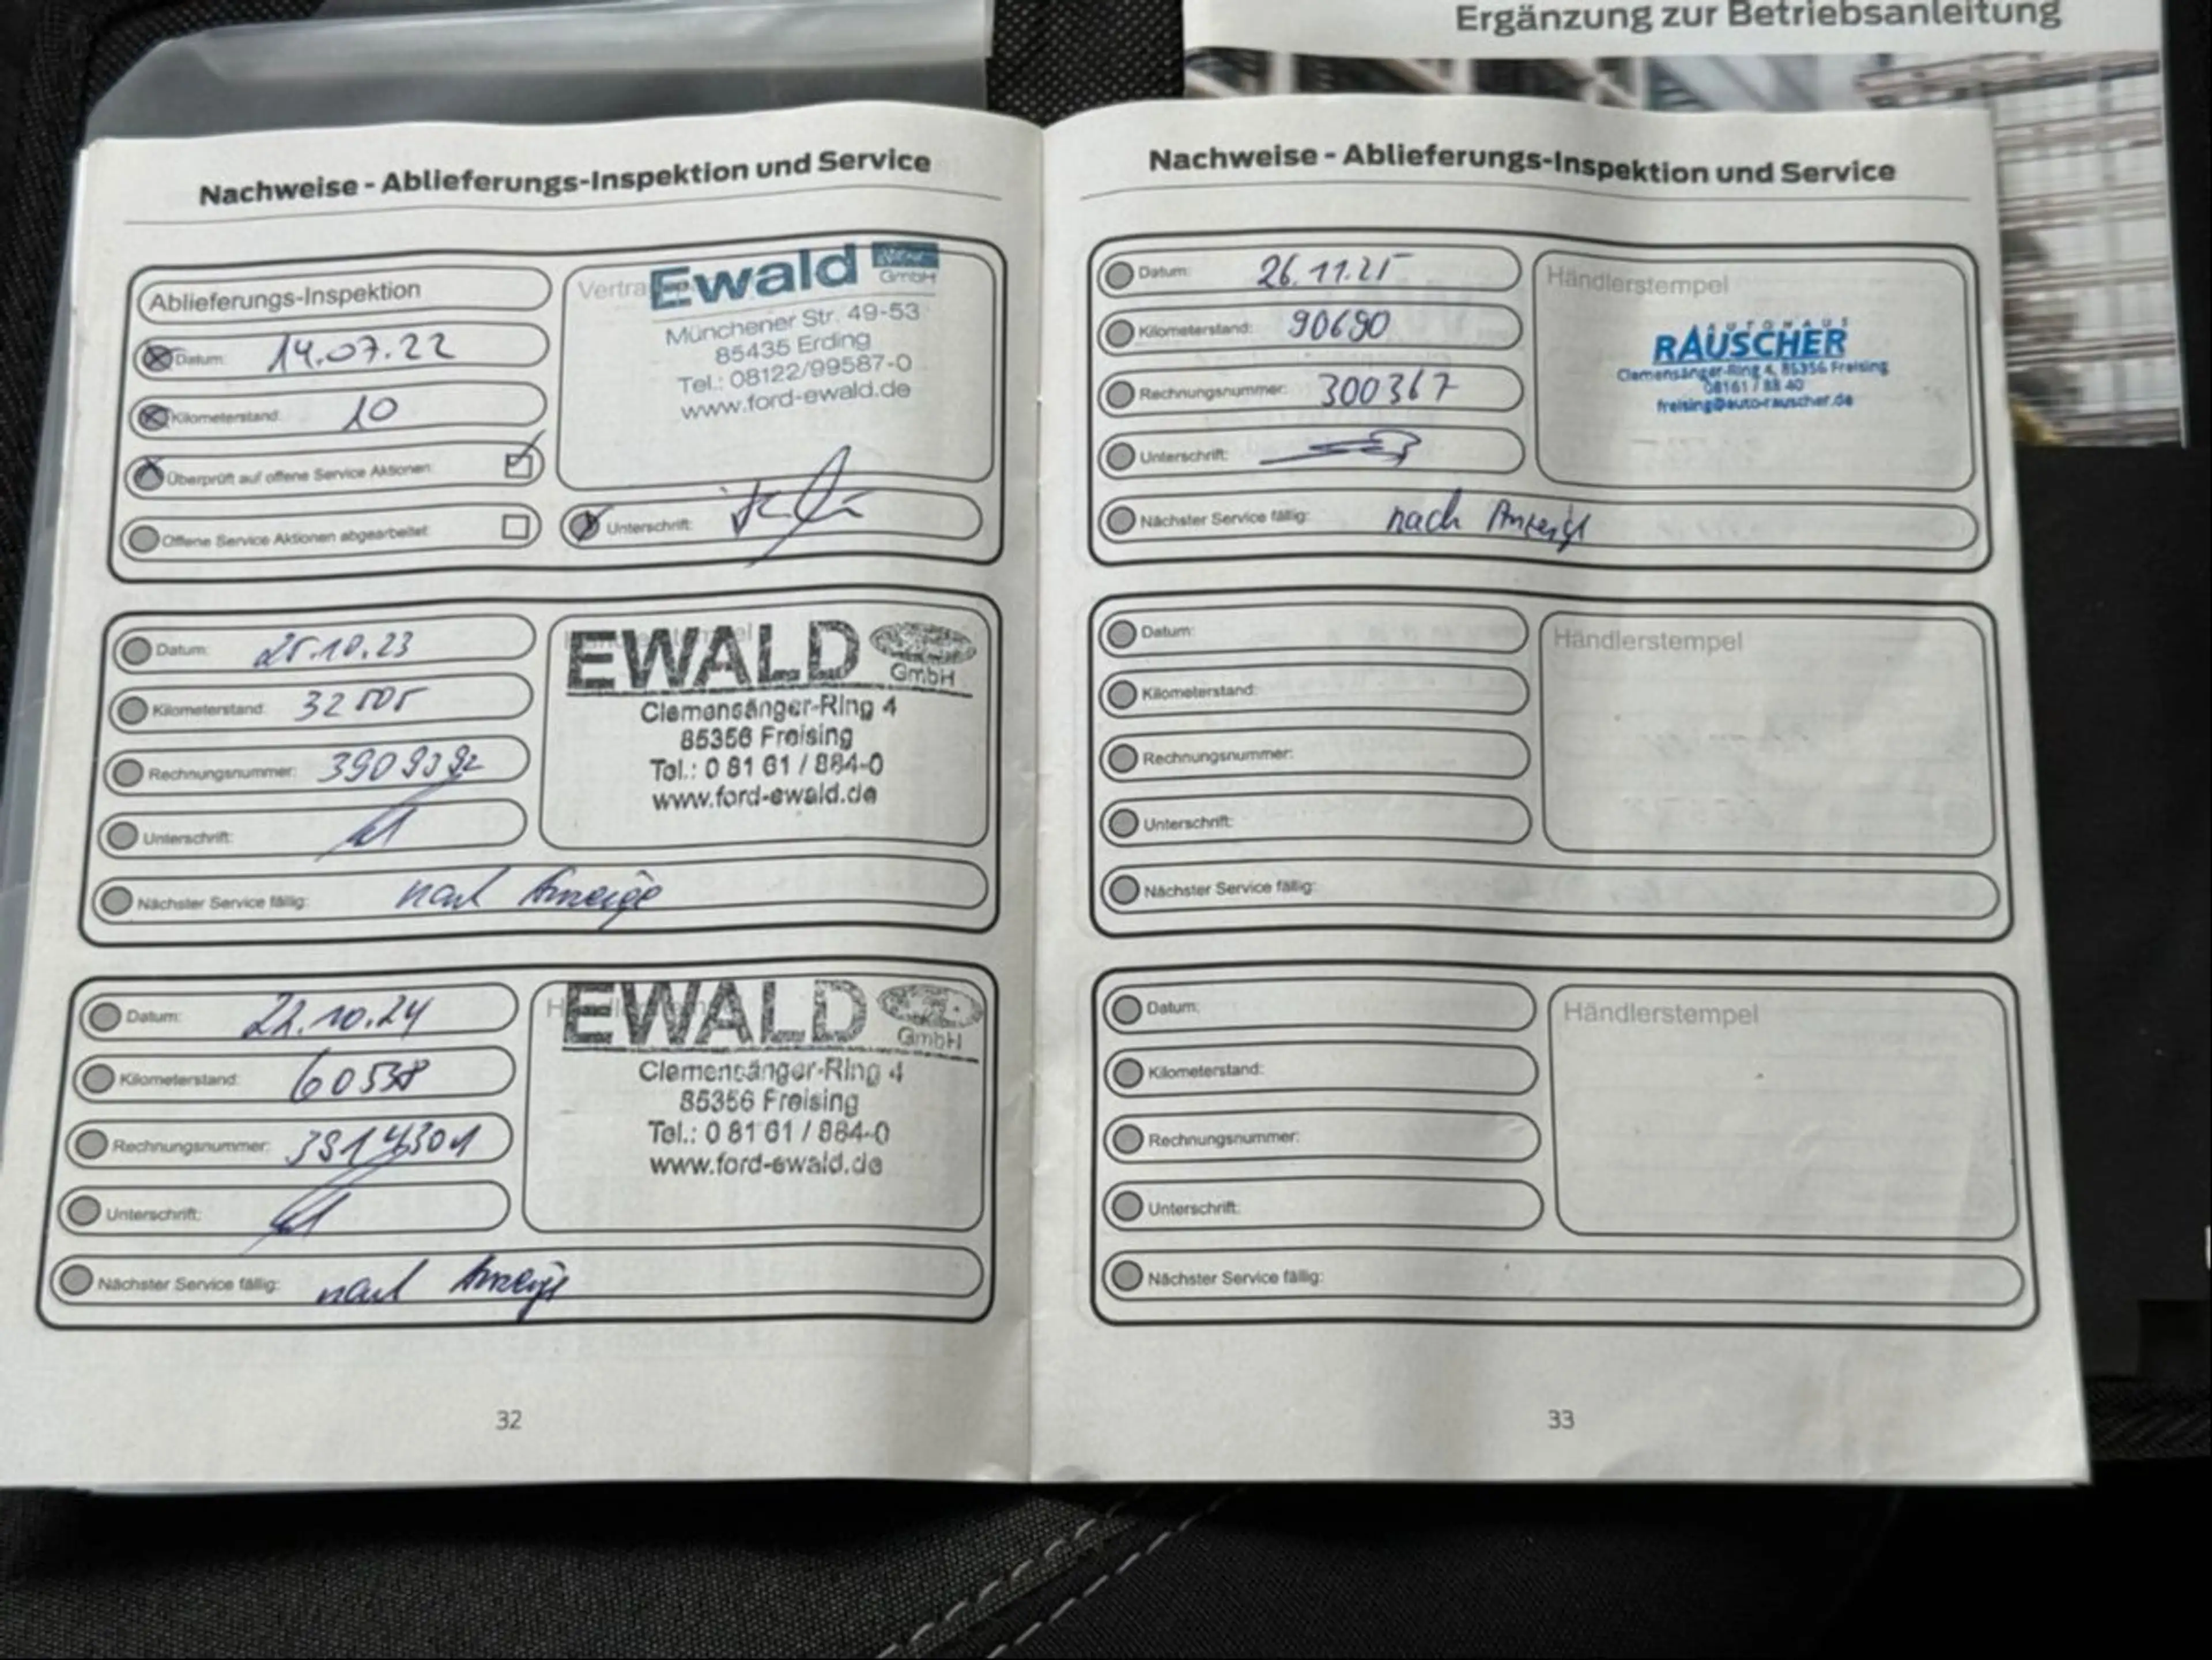 Ergänzung zur Betriebsanleitung
Nachweise - Ablieferungs-Inspektion und Service
Ablieferungs-Inspektion
Datum: 14.07.22
Kilometerstand: 10
Überprüft auf offene Service Aktionen:
Offene Service Aktionen abgearbeitet:
Ewald
GmbH
Münchener Str. 49-53
85435 Erding
Tel.: 08122/99587-0
www.ford-ewald.de
Unterschrift:
Datum: 25.10.23
Kilometerstand: 32505
Rechnungsnummer: 3909392
Unterschrift:
Nächster Service fällig: nach Anzeige
EWALD
GmbH
Clemensänger-Ring 4
85356 Freising
Tel.: 0 81 61 / 884-0
www.ford-ewald.de
Datum: 22.10.24
Kilometerstand: 60538
Rechnungsnummer: 3914301
Unterschrift:
Nächster Service fällig: nach Anzeige
EWALD
GmbH
Clemensänger-Ring 4
85356 Freising
Tel.: 0 81 61 / 884-0
www.ford-ewald.de
32
Nachweise - Ablieferungs-Inspektion und Service
Datum: 26.11.25
Kilometerstand: 90690
Rechnungsnummer: 300367
Unterschrift:
Nächster Service fällig: nach Anzeige
Händlerstempel
AUTOHAUS
RAUSCHER
Clemensänger-Ring 4, 85356 Freising
08161 / 88 40
freising@auto-rauscher.de
Datum:
Kilometerstand:
Rechnungsnummer:
Unterschrift:
Nächster Service fällig:
Händlerstempel
Datum:
Kilometerstand:
Rechnungsnummer:
Unterschrift:
Nächster Service fällig:
Händlerstempel
33